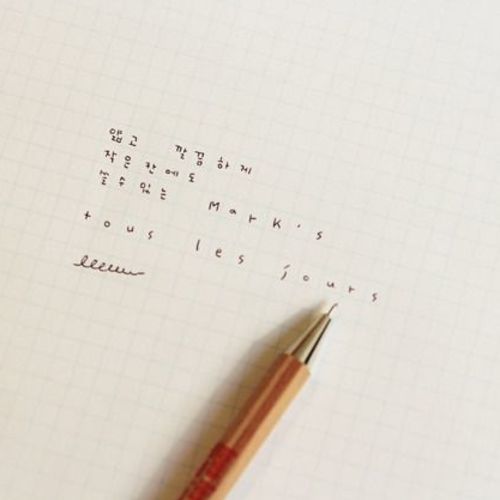 얇고 깔끔하게
작은 칸에도
쓸수 있는 Mark's
tous les jours